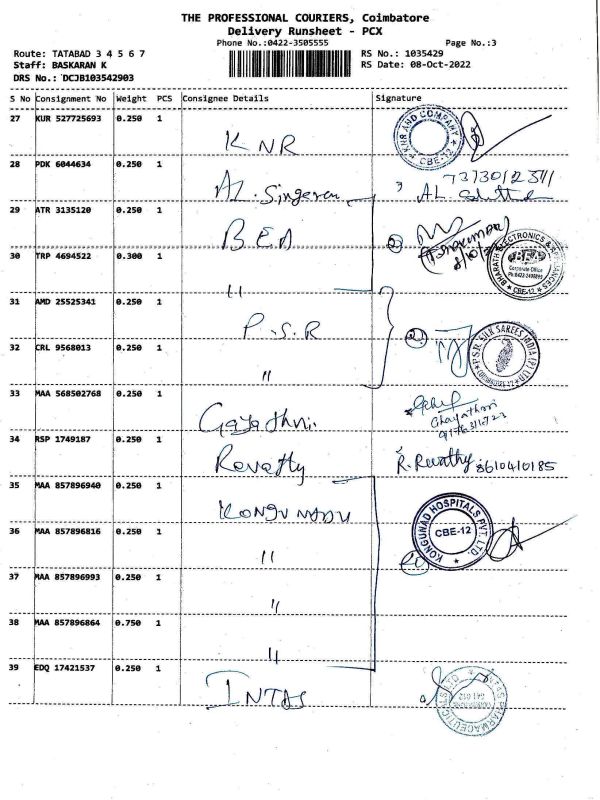 THE PROFESSIONAL COURIERS, Coimbatore
Delivery Runsheet - PCX
Phone No.:0422-3505555 Page No.:3
Route: TATABAD 3 4 5 6 7 RS No.: 1035429
Staff: BASKARAN K RS Date: 08-Oct-2022
DRS No.: DCJB103542903
S No Consignment No Weight PCS Consignee Details Signature
27 KUR 527725693 0.250 1 KNR KNR AND COMPANY CBE-12
28 PDK 6044634 0.250 1 AL. Singeran
29 ATR 3135120 0.250 1 BEA
30 TRP 4694522 0.300 1 " BHARATH ELECTRONICS & APPLIANCES BEA Corporate Office CBE-12
31 AMD 25525341 0.250 1 P.S.R
32 CRL 9568013 0.250 1 " P.S.R. SILK SAREES INDIA (P) LTD.
33 MAA 568502768 0.250 1 Gayathri. Ghayathri
34 RSP 1749187 0.250 1 Revathy R. Revathy 8610410185
35 MAA 857896940 0.250 1 KONGUNADU KONGUNAD HOSPITALS PVT. LTD. CBE-12
36 MAA 857896816 0.250 1 "
37 MAA 857896993 0.250 1 "
38 MAA 857896864 0.750 1 "
39 EDQ 17421537 0.250 1 INTAS